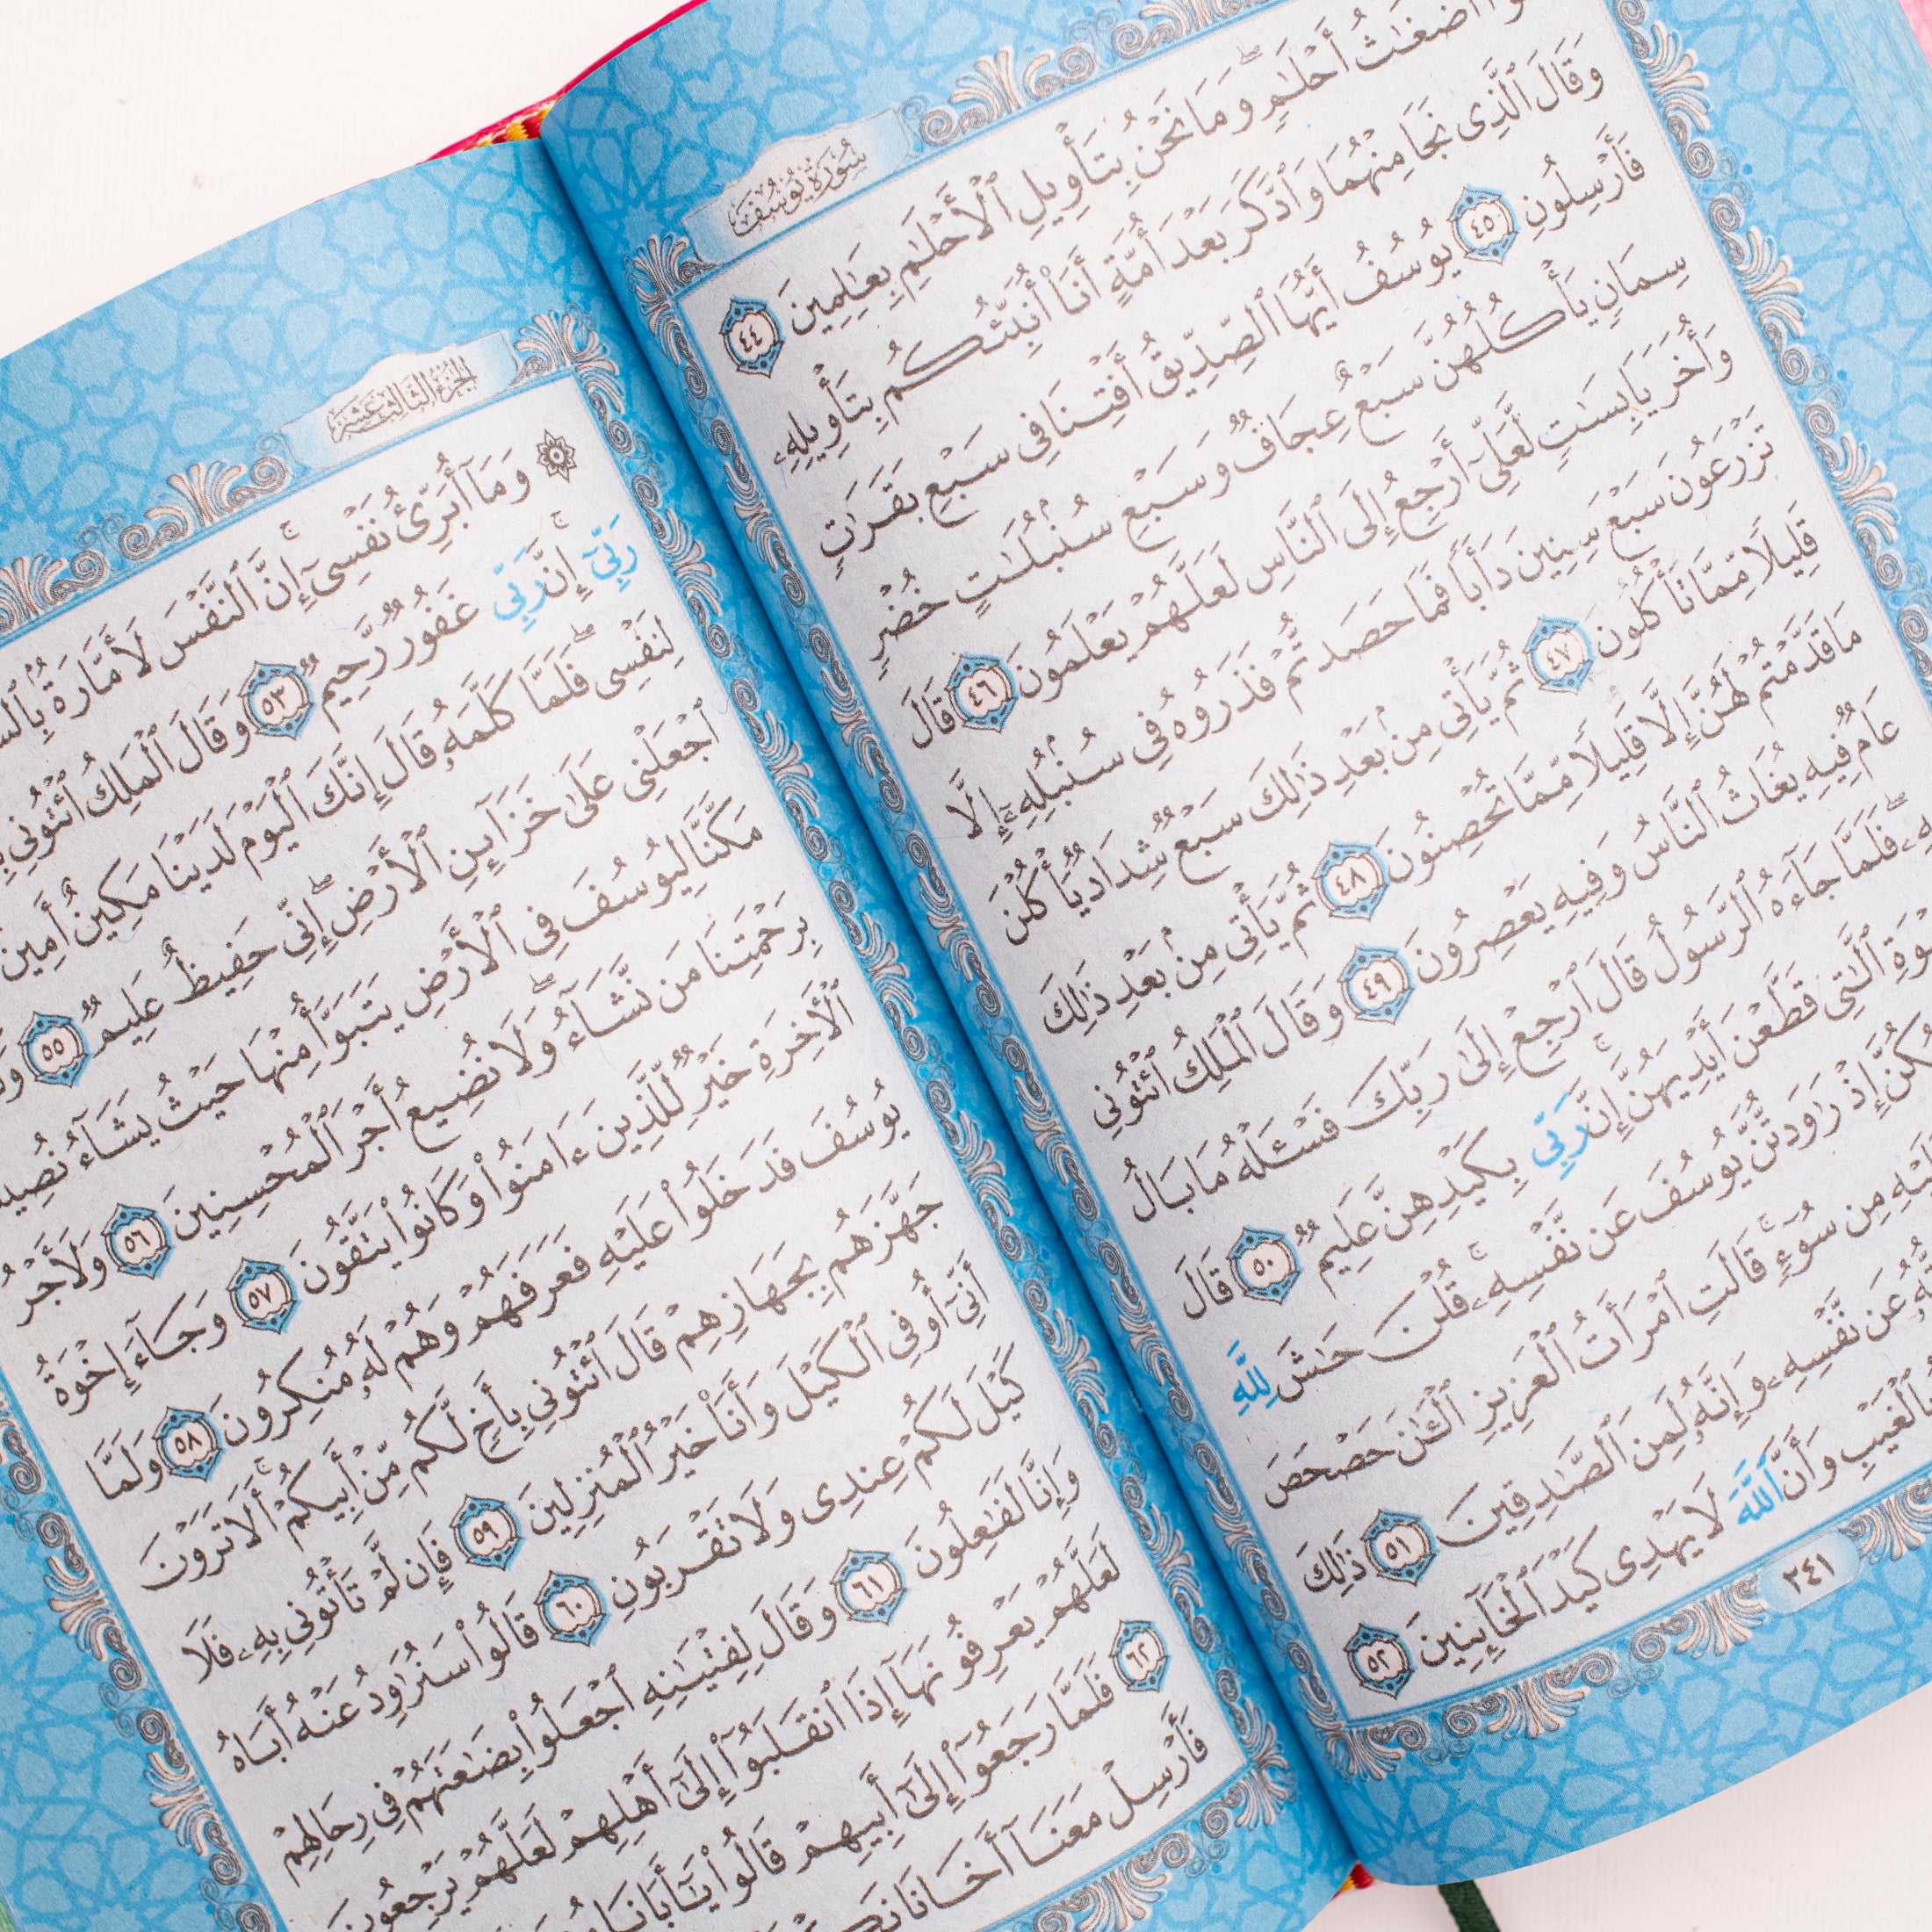 سُورَةُ يُوسُفَ
أَضْغَٰثُ أَحْلَٰمٍ ۖ وَمَا نَحْنُ بِتَأْوِيلِ ٱلْأَحْلَٰمِ بِعَٰلِمِينَ ٤٤
وَقَالَ ٱلَّذِى نَجَا مِنْهُمَا وَٱدَّكَرَ بَعْدَ أُمَّةٍ أَنَا۠ أُنَبِّئُكُم بِتَأْوِيلِهِۦ
فَأَرْسِلُونِ ٤٥ يُوسُفُ أَيُّهَا ٱلصِّدِّيقُ أَفْتِنَا فِى سَبْعِ بَقَرَٰتٍ
سِمَانٍ يَأْكُلُهُنَّ سَبْعٌ عِجَافٌ وَسَبْعِ سُنۢبُلَٰتٍ خُضْرٍ
وَأُخَرَ يَابِسَٰتٍ لَّعَلِّىٓ أَرْجِعُ إِلَى ٱلنَّاسِ لَعَلَّهُمْ يَعْلَمُونَ ٤٦ قَالَ
تَزْرَعُونَ سَبْعَ سِنِينَ دَأَبًا فَمَا حَصَدتُّمْ فَذَرُوهُ فِى سُنۢبُلِهِۦٓ إِلَّا
قَلِيلًا مِّمَّا تَأْكُلُونَ ٤٧ ثُمَّ يَأْتِى مِنۢ بَعْدِ ذَٰلِكَ سَبْعٌ شِدَادٌ يَأْكُلْنَ
مَا قَدَّمْتُمْ لَهُنَّ إِلَّا قَلِيلًا مِّمَّا تُحْصِنُونَ ٤٨ ثُمَّ يَأْتِى مِنۢ بَعْدِ ذَٰلِكَ
عَامٌ فِيهِ يُغَاثُ ٱلنَّاسُ وَفِيهِ يَعْصِرُونَ ٤٩ وَقَالَ ٱلْمَلِكُ ٱئْتُونِى
فَلَمَّا جَآءَهُ ٱلرَّسُولُ قَالَ ٱرْجِعْ إِلَىٰ رَبِّكَ فَسْـَٔلْهُ مَا بَالُ
ٱلَّٰتِى قَطَّعْنَ أَيْدِيَهُنَّ ۚ إِنَّ رَبِّى بِكَيْدِهِنَّ عَلِيمٌ ٥٠ قَالَ
إِذْ رَٰوَدتُّنَّ يُوسُفَ عَن نَّفْسِهِۦ ۚ قُلْنَ حَٰشَ لِلَّهِ
مِن سُوٓءٍ ۚ قَالَتِ ٱمْرَأَتُ ٱلْعَزِيزِ ٱلْـَٰٔنَ حَصْحَصَ
عَن نَّفْسِهِۦ وَإِنَّهُۥ لَمِنَ ٱلصَّٰدِقِينَ ٥١ ذَٰلِكَ
بِٱلْغَيْبِ وَأَنَّ ٱللَّهَ لَا يَهْدِى كَيْدَ ٱلْخَآئِنِينَ ٥٢
٢٤١
الجزء الثالث عشر
۞ وَمَآ أُبَرِّئُ نَفْسِىٓ ۚ إِنَّ ٱلنَّفْسَ لَأَمَّارَةٌۢ
رَبِّىٓ ۚ إِنَّ رَبِّى غَفُورٌ رَّحِيمٌ ٥٣ وَقَالَ ٱلْمَلِكُ ٱئْتُونِى
لِنَفْسِى ۖ فَلَمَّا كَلَّمَهُۥ قَالَ إِنَّكَ ٱلْيَوْمَ لَدَيْنَا مَكِينٌ أَمِينٌ
ٱجْعَلْنِى عَلَىٰ خَزَآئِنِ ٱلْأَرْضِ ۖ إِنِّى حَفِيظٌ عَلِيمٌ ٥٥
مَكَّنَّا لِيُوسُفَ فِى ٱلْأَرْضِ يَتَبَوَّأُ مِنْهَا حَيْثُ يَشَآءُ ۚ نُصِيبُ
بِرَحْمَتِنَا مَن نَّشَآءُ ۖ وَلَا نُضِيعُ أَجْرَ ٱلْمُحْسِنِينَ ٥٦ وَلَأَجْرُ
ٱلْـَٔاخِرَةِ خَيْرٌ لِّلَّذِينَ ءَامَنُوا۟ وَكَانُوا۟ يَتَّقُونَ ٥٧ وَجَآءَ إِخْوَةُ
يُوسُفَ فَدَخَلُوا۟ عَلَيْهِ فَعَرَفَهُمْ وَهُمْ لَهُۥ مُنكِرُونَ ٥٨ وَلَمَّا
جَهَّزَهُم بِجَهَازِهِمْ قَالَ ٱئْتُونِى بِأَخٍ لَّكُم مِّنْ أَبِيكُمْ ۚ أَلَا تَرَوْنَ
أَنِّىٓ أُوفِى ٱلْكَيْلَ وَأَنَا۠ خَيْرُ ٱلْمُنزِلِينَ ٥٩ فَإِن لَّمْ تَأْتُونِى بِهِۦ فَلَا
كَيْلَ لَكُمْ عِندِى وَلَا تَقْرَبُونِ ٦٠ قَالُوا۟ سَنُرَٰوِدُ عَنْهُ أَبَاهُ
وَإِنَّا لَفَٰعِلُونَ ٦١ وَقَالَ لِفِتْيَٰنِهِ ٱجْعَلُوا۟ بِضَٰعَتَهُمْ فِى رِحَالِهِمْ
لَعَلَّهُمْ يَعْرِفُونَهَآ إِذَا ٱنقَلَبُوٓا۟ إِلَىٰٓ أَهْلِهِمْ لَعَلَّهُمْ يَرْجِعُونَ
٦٢ فَلَمَّا رَجَعُوٓا۟ إِلَىٰٓ أَبِيهِمْ قَالُوا۟ يَٰٓأَبَانَا
فَأَرْسِلْ مَعَنَآ أَخَانَا